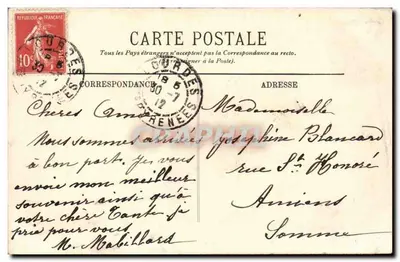 CARTE POSTALE
Tous les Pays étrangers n'acceptent pas la Correspondance au recto.
(Se renseigner à la Poste).
CORRESPONDANCE
ADRESSE
REPUBLIQUE FRANÇAISE
10
LOURDES
30-7
12
PYRENEES
Chères Amies
Nous sommes arrivées
à bon port. Je vous
envoie mon meilleur
souvenir ainsi qu'à
votre chère Tante. je
prie pour vous
M. Mabillard
Mademoiselle
Joséphine Blancard
rue St Honoré
Amiens
Somme